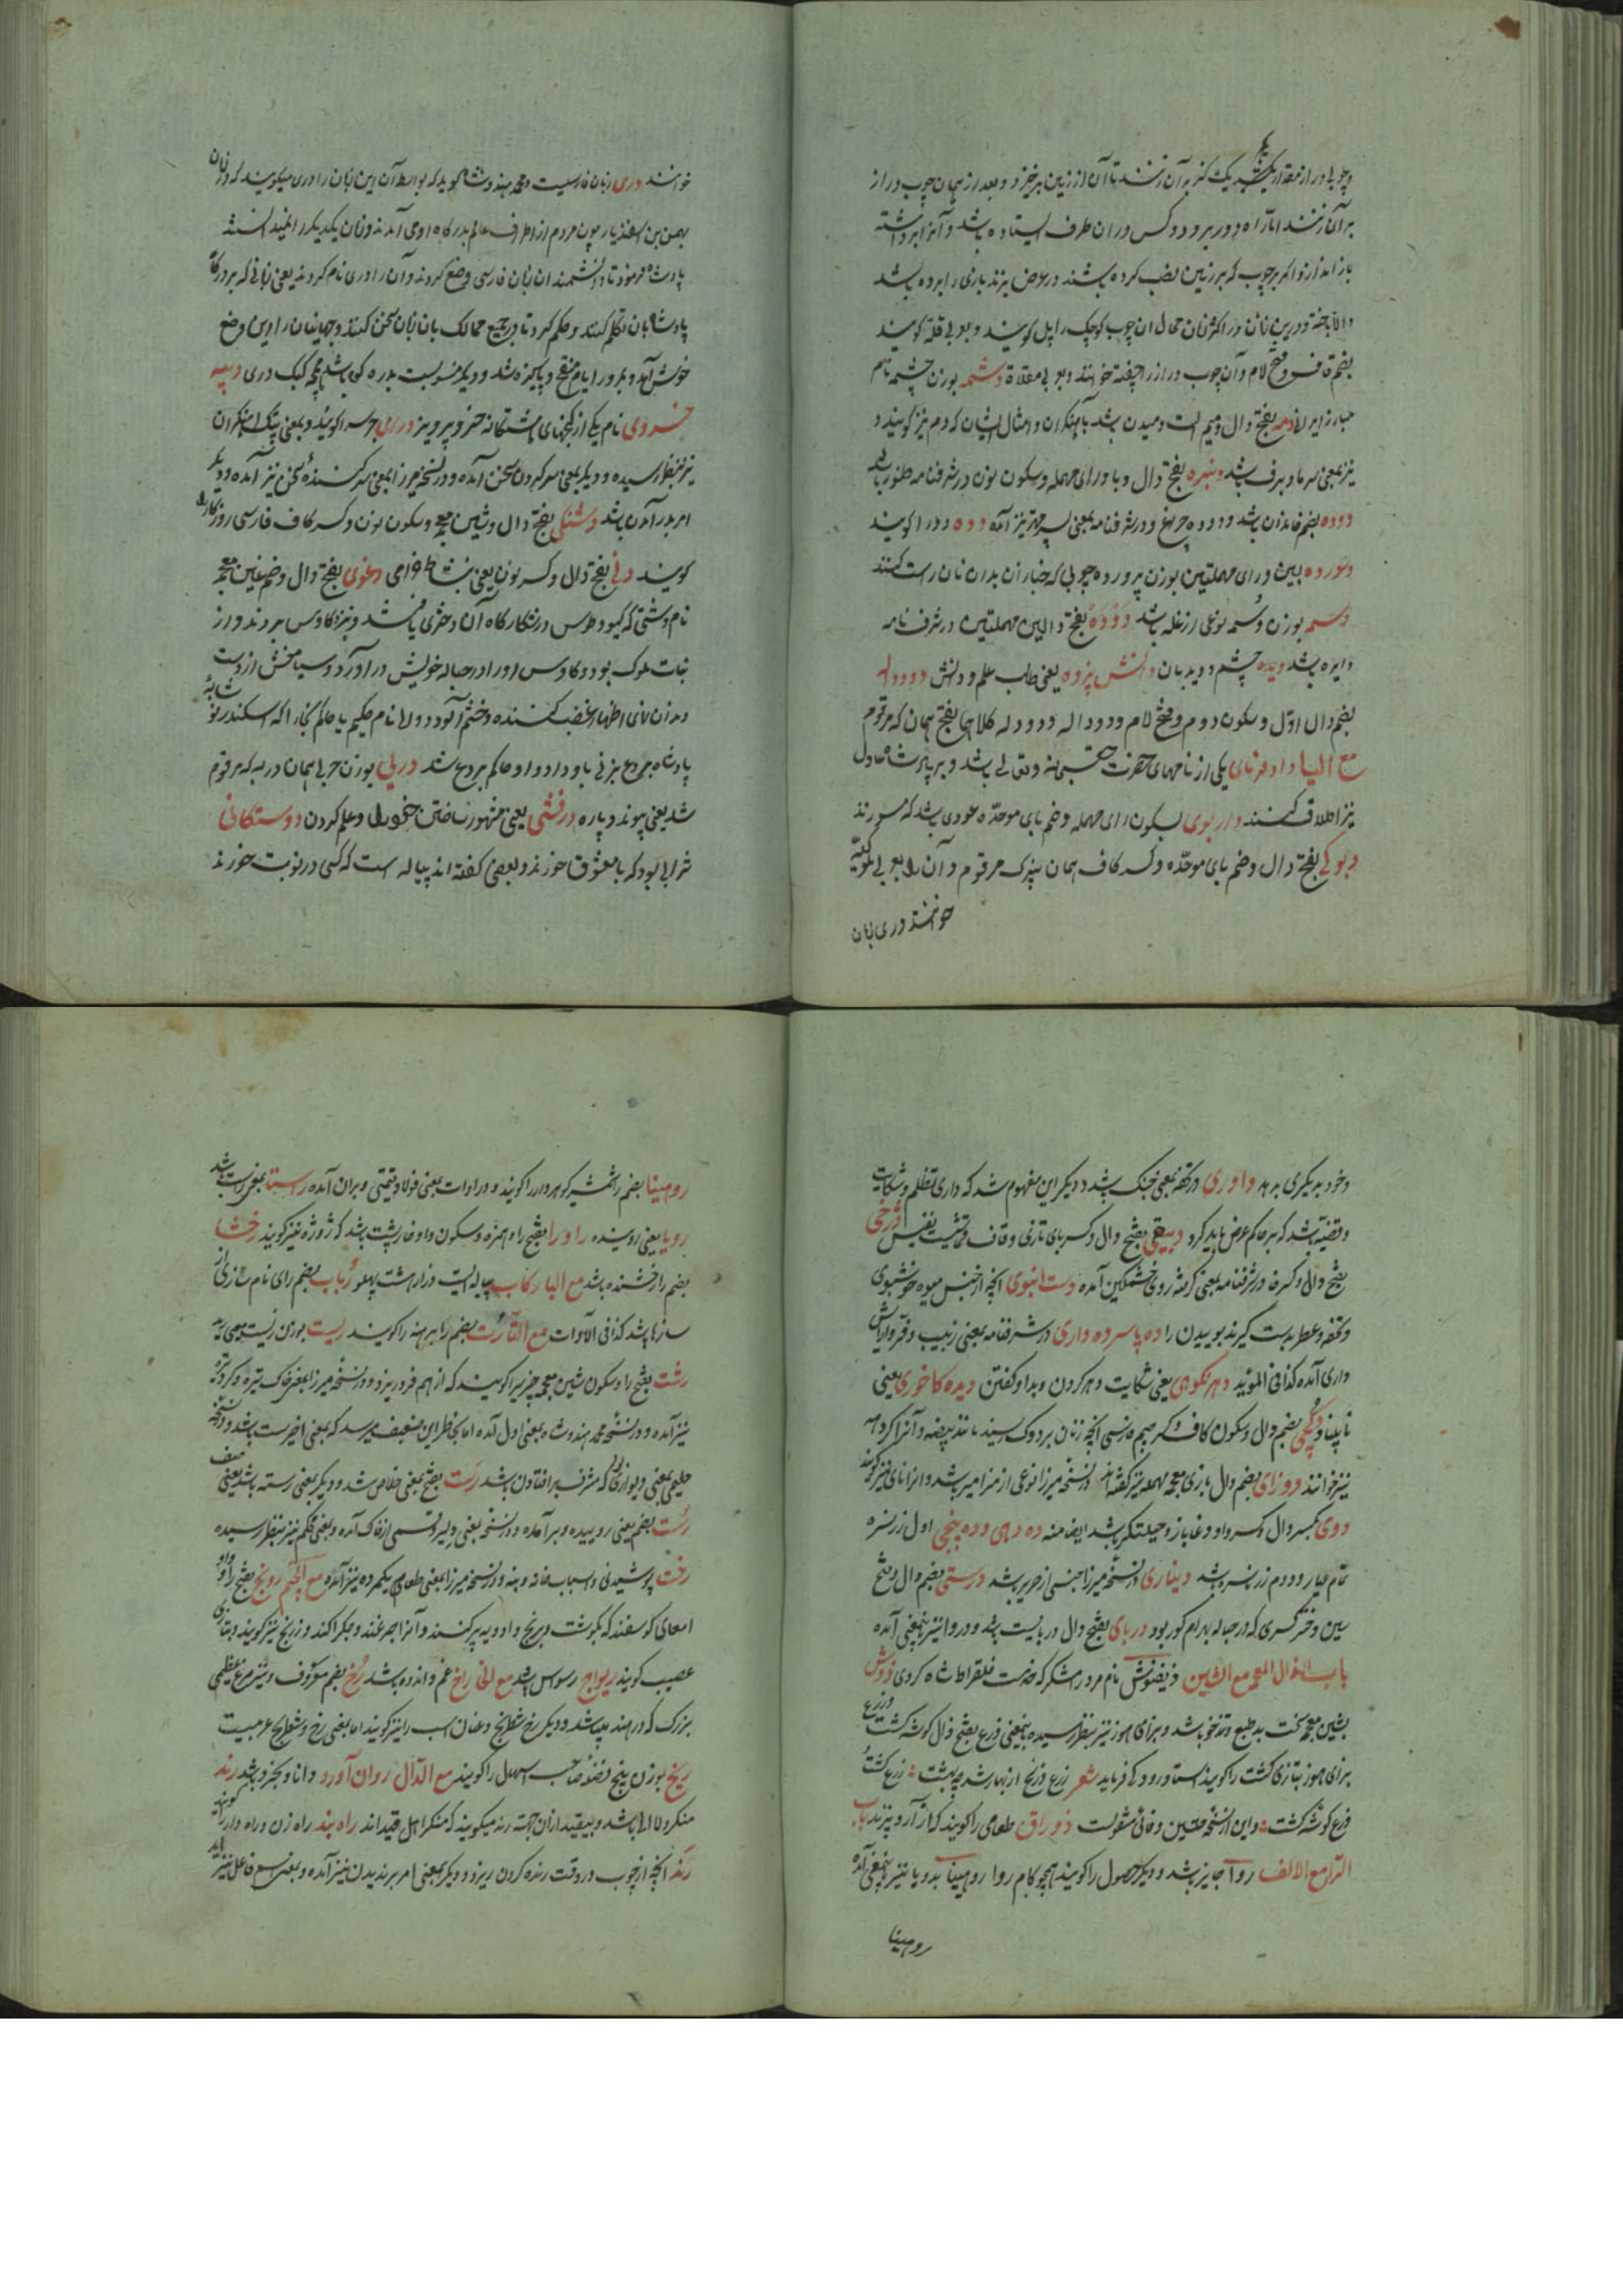 و چوبی دراز مقدار یک یک سر بر آن زنند تا آن از زمین برخیزد و بعد از همان چوب دراز
بر آن زنند تا راه دور برود و کس در ان طرف ایستاده باشد و آنرا برداشته
باز اندازد اگر بر چوب که بر زمین نصب کرده باشند در عوض بزند بازی را برده باشد
و الا باخته و درین زمان در اکثر زبان محال ان چوب کوچک را پل گویند و بعربی قلة گویند
بضم قاف و فتح لام و آن چوب دراز را چفته خوانند و بعربی مقلاة دشمه بوزن چشمه نام
مبارز ایرانی دمه بفتح دال و میم الت دمیدن باشد آهنگران و امثال ایشان که دم نیز گویند و
نیز بمعنی سرما و برف باشد دنبره بفتح دال و با و رای مهمله و سکون نون در شرفنامه طنور باشد
دوده بضم خاندان باشد و دوده چراغ و در شرفنامه بمعنی پسر مهتر نیز آمده دوه دود را گویند
دسورده بسین و رای مهملتین بوزن پرورده چوبی که خبازان بدان نان راست کنند
دسمه بوزن وسمه نوعی از غله باشد دَوْدَهْ بفتح دالین مهملتین در شرفنامه
دایره باشد دیده چشم و دیدبان دانش پژوه یعنی طلب علم و دانش دودله
بضم دال اول و سکون دوم و فتح لام و دوداله و دودله کلاهما بفتح همان که مرقوم
مع الیا دادفرمای یکی از نامهای حضرت حق سبحانه و تعالی باشد و بر پادشاه عادل
نیز اطلاق کنند داربوی بسکون رای مهمله و ضم بای موحده عودی باشد که می سوزند
دبوکی بفتح دال و ضم بای موحده و کسر کاف همان پنیرک مرقوم و آن را بعربی ملوکیه
خوانند دری زبان
خوانند دری زبان فارسیست و محمد هندوشاه گوید که بواسطه آن این زبان را دری میگویند که در زمان
بهمن بن اسفندیار چون مردم از اطراف عالم بدرگاه او می آمدند و زبان یکدیگر را نمیدانستند
پادشاه فرمود تا دانشمندان زبان فارسی وضع کردند و آن را دری نام کردند یعنی زبانی که بر درگاه
پادشاهان تکلم کنند و حکم کرد تا در جمیع ممالک بان زبان سخن کنند و جهانیان را این وضع
خوش آمد و بمرور ایام منقح و پاکیزه شد و دیگر منسوبست بدره کوه باشد همچو کبک دری دیبه
خسروی نام یکی از گنجهای هشتگانه خسرو پرویز درای جرس را گویند و بمعنی پتک آهنگران
نیز بنظر رسیده و دیگر بمعنی سر کردن سخن آمده و در نسخه میرزا بمعنی سر کننده سخن نیز آمده و دیگر
امر بدر آمدن باشد دشنگی بفتح دال و شین معجمه و سکون نون و کسر کاف فارسی روزگار را
گویند دنی بفتح دال و کسر نون یعنی بنشاط خرامی دغوی بفتح دال و ضم غین معجمه
نام دشتی که گیو و طوس در شکارگاه آن دختری یافتند و نزد کاوس بردند و از
بنات ملوک بود و کاوس اورا در حباله خویش در آورد و سیاوخش از وست
دمان اظهار غضب کننده و خشم آلود و دولا نام حکیم یا حاکم کجا را که اسکندر نو
پادشاه بردع بزنی باو داد و او حاکم بردع شد دربی بوزن حربی همان درپه که مرقوم
شد یعنی پیوند و پاره درفشی یعنی مشهور ساختن خود را و علم کردن دوستکانی
شرابی بود که با معشوق خورند و بعضی گفته اند پیاله است که کسی در نوبت خورند
و خود بدیگری بدهد داوری در تحفه بمعنی جنگ باشد و دیگر این مفهوم شد که داری تظلم و شکایت
و قضیه باشد که بر حاکم عرض باید کرد دبیقی بفتح دال و کسر بای تازی و قاف قماشیست نفیس دژخی
بفتح دال و کسر خا در شرفنامه بمعنی گرفته روی خشمگین آمده دست انبوی انچه از جنس میوه خوشبوی
و تحفه و عطر بدست گیرند بوییدن را ده پا سرده داری در شرفنامه بمعنی زیب و فر و آرایش
داری آمده کذا فی الموید دهرنکوهی یعنی شکایت دهر کردن و بد او گفتن دیده کاخوری یعنی
نابینا دُکچی بضم دال و سکون کاف و کسر جیم فارسی انچه زنان بر دوک ریسند مانند بیضه و آنرا کرده
نیز خوانند دوزای بضم دال با زای معجمه مهمله نیز گفته اند در نسخه میرزا نوعی از مزامیر باشد و انرا نای نیز گویند
دوی بکسر دال و کسر واو دغاباز و حیلتگر باشد ایضا منه ده دهی و ده پنجی اول زر سره
تمام عیار و دوم زر نسره باشد دیناری در نسخه میرزا جنسی از حریر باشد درستی بضم دال و فتح
سین دختر کسری که در حباله بهرام گور بود دربای بفتح دال دربایست باشد و دروا نیز بهمین معنی آمده
باب الذال المعجمة مع الشین ذیفنوش نام مرد رامشگر که خدمت فلقراط شاه کردی ذوش
بشین معجمه سخت بد طبع و تندخو باشد و بزای هوز نیز بنظر رسیده بهمین معنی ذرع بفتح ذال گوشه کشت و زرع
بزای هوز بتازی کشت را گویند استاد رودکی فرماید شعر زرع و ذرع از بهار شد چو بهشت زرع کشت
ذرع گوشه کشت و این از نسخه حلیمی و وفائی منقولست ذوراق طعامی را گویند که از آرد پزند باب
الرا مع الالف روا جایز باشد و دیگر حصول را گویند همچو کام روا روهینا بدو یا نیز بهمین معنی آمده
روهینا
روهینا بضم را شمشیر گوهردار را گویند و در ادات بمعنی فولاد قیمتی و بران آمده راستا بمعنی راست باشد
رویا یعنی روینده راورا بفتح را و همزه و سکون واو خارپشت باشد که ژوژه نیز گویند رخشا
بضم را رخشنده باشد مع البا رکاب پیاله ایست دراز هشت پهلو رُباب بضم رای نام سازی از
سازها باشد کذا فی الادات مع التا رُت بضم را برهنه را گویند ریست بوزن زیست بمعنی ریه
رشت بفتح را و سکون شین معجمه چیزی را گویند که از هم فرو ریزد و در نسخه میرزا بمعنی خاک تیره و گرد تره
نیز آمده و در نسخه محمد هندوشاه بمعنی اول آمده اما بخاطر این ضعیف میرسد که بمعنی اخیر ست باشد و در نسخه
حلیمی بمعنی دیوار که مشرف بر افتادن باشد رَست بفتح بمعنی خلاص شد و دیگر بمعنی رسته باشد یعنی صف
رُست بضم یعنی روییده و برآمده و در نسخه یعنی دلیر و قسمی از خاک آمده و بمعنی محکم نیز بنظر رسیده
رخت پوشیدنی و اسباب خانه و بنه و در نسخه میرزا بمعنی طعام یکمرده نیز آمده مع الجیم رونج بفتح را و واو
امعای گوسفند که بگوشت و برنج و ادویه پر کنند و آنرا جرغند و جگراکند و زرنج نیز گویند و بتازی
عصیب گویند ریواج ریواس باشد مع الخا رخ غم و اندوه باشد رُخ بضم معروف و نیز مرغ عظیمی
بزرگ که در هند میباشد و دیگر رخ شطرنج و عنان اسب را نیز گویند اما بمعنی رخ و شطرنج عربیست
ریخ بوزن بیخ فضله صاحب اسهال را گویند مع الدال روان آورد دانا و بخرد باشد رند
منکر و لاابالی باشد و بیقید از ان جهت رند میگویند که منکر اهل قیدند راه بند راه زن و راه دار را گویند
رَند انچه از چوب در وقت رنده کردن ریزد و دیگر بمعنی امر برندیدن نیز آمده و بمعنی اسم فاعل نیز آید